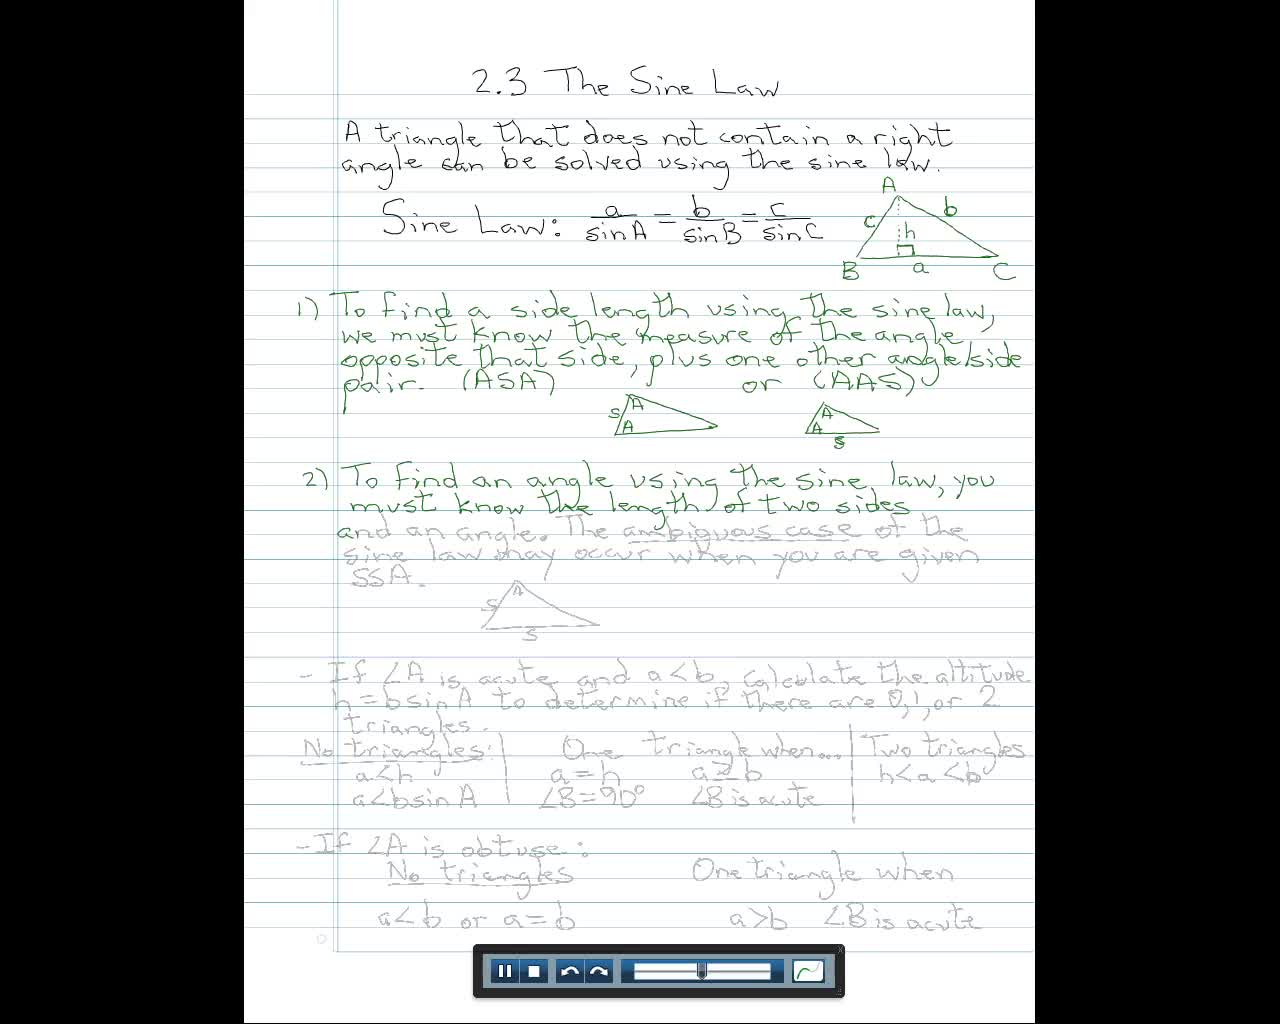 2.3 The Sine Law
A triangle that does not contain a right
angle can be solved using the sine law.
Sine Law: a/sinA = b/sinB = c/sinC
A
c
b
h
B
a
C
1) To find a side length using the sine law,
we must know the measure of the angle
opposite that side, plus one other angle/side
pair. (ASA) or (AAS)
A
S
A
A
A
S
2) To find an angle using the sine law, you
must know the length of two sides
and an angle. The ambiguous case of the
sine law may occur when you are given
SSA.
A
S
S
- If ∠A is acute and a<b, calculate the altitude
h = b sin A to determine if there are 0, 1, or 2
triangles.
No triangles: One triangle when... Two triangles
a<h a=h a≥b h<a<b
a<b sin A ∠B=90° ∠B is acute
- If ∠A is obtuse:
No triangles One triangle when
a<b or a=b a>b ∠B is acute